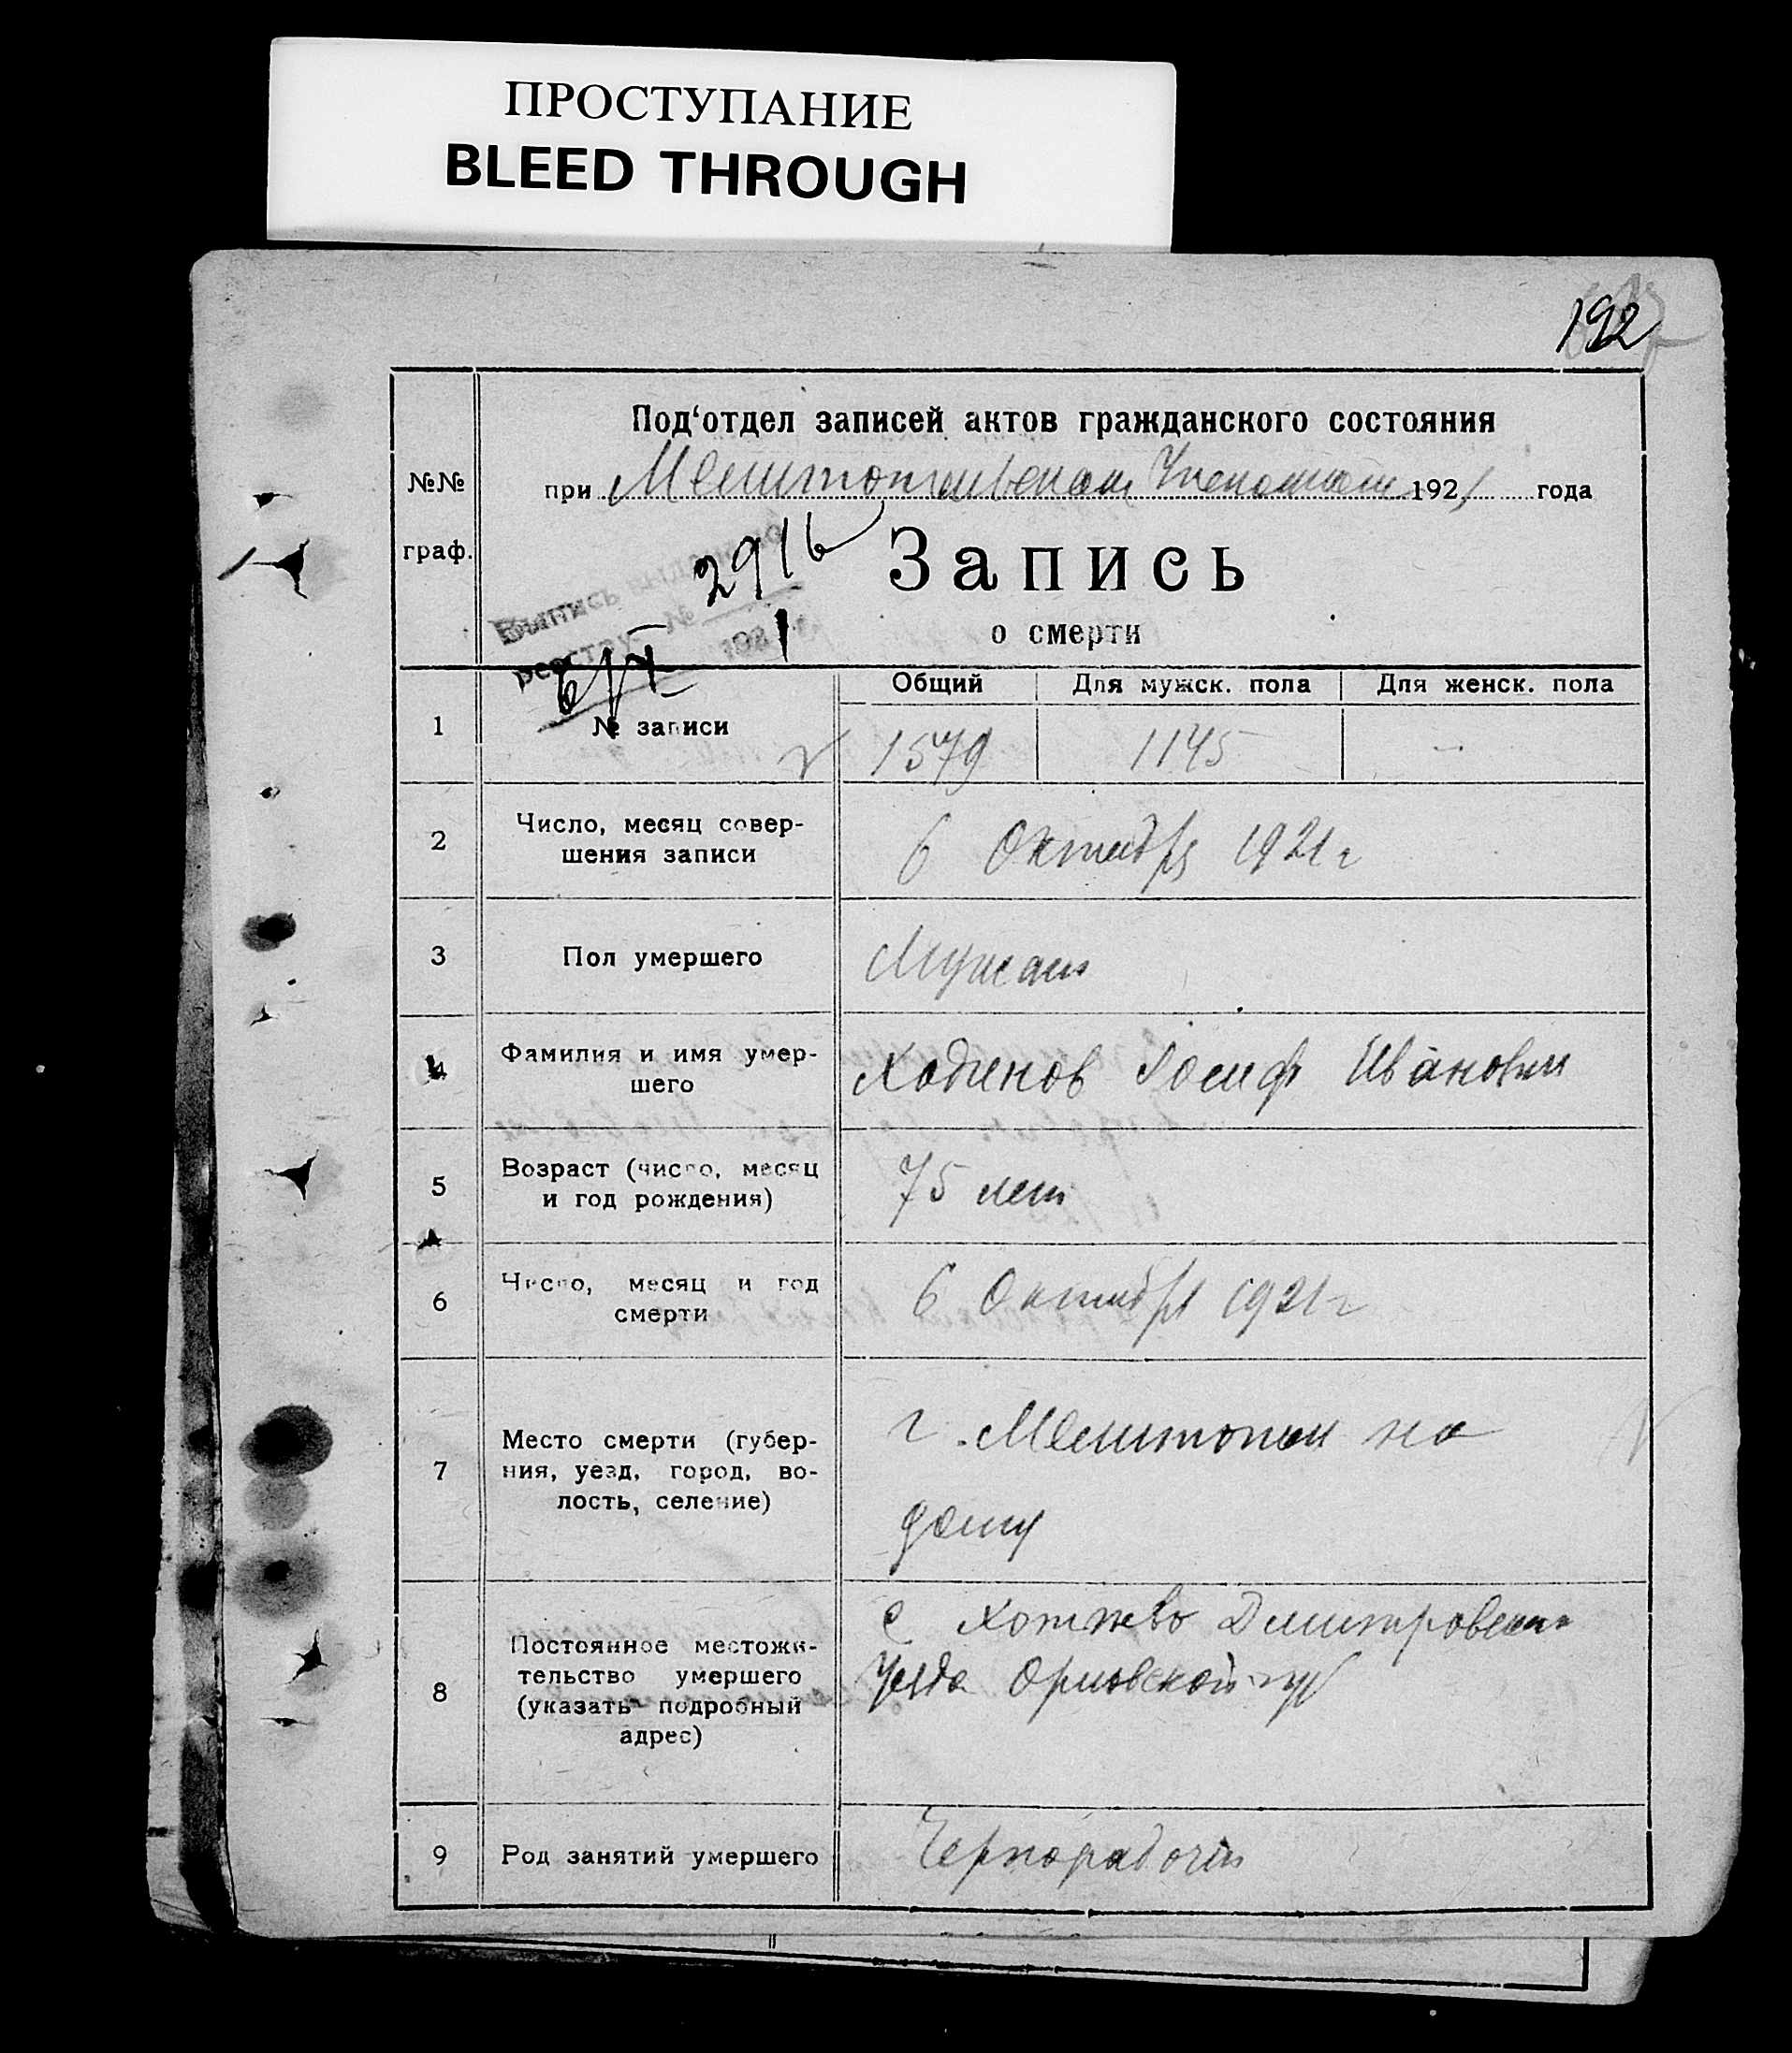 ПРОСТУПАНИЕ
BLEED THROUGH
192
Под‘отдел записей актов гражданского состояния
№№ граф.
при Мелитопольском 1921 года
2916
Запись
о смерти
Выпись выдана по
реестру № 192
Общий Для мужск. пола Для женск. пола
1 № записи 1579 1145 —
2 Число, месяц совер-
шения записи 6 Октября 1921 г
3 Пол умершего Мужской
4 Фамилия и имя умер-
шего Иосиф Иванович
5 Возраст (число, месяц
и год рождения) 75 лет
6 Число, месяц и год
смерти 6 Октября 1921 г
7 Место смерти (губер-
ния, уезд, город, во-
лость, селение) г. Мелитополь на
дому
8 Постоянное местожи-
тельство умершего
(указать подробный
адрес) с Дмитровского
Уезда Орловской губ
9 Род занятий умершего Чернорабочий